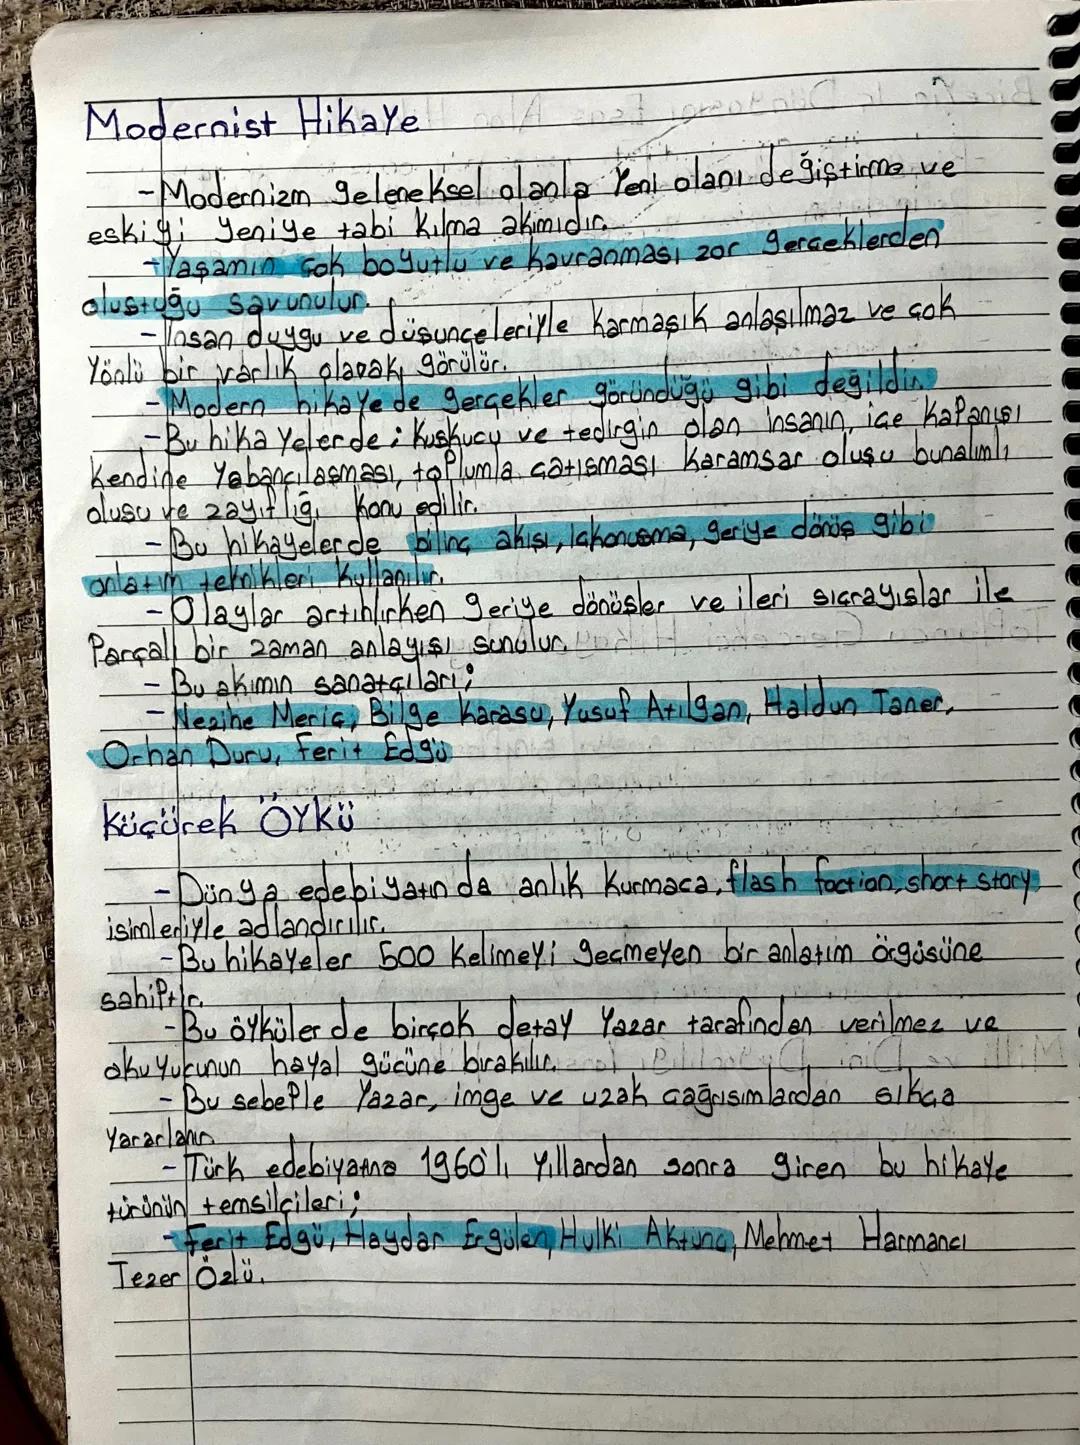 Modernist Hikaye
- Modernizm geleneksel olanla Yeni olanı değiştirme ve
eskiyi yeniye tabi kılma akımıdır.
- Yaşamın çok boyutlu ve kavranması zor gerçeklerden
oluştuğu savunulur.
- İnsan duygu ve düşünceleriyle karmaşık anlaşılmaz ve çok
Yönlü bir varlık olarak görülür.
- Modern hikaye de gerçekler göründüğü gibi değildir.
- Bu hikayelerde; kuşkucu ve tedirgin olan insanın, içe kapanışı
kendine Yabancılaşması, toplumla çatışması karamsar oluşu bunalımlı
oluşu ve zayıflığı konu edilir.
- Bu hikayelerde bilinç akışı, içkonuşma, geriye dönüş gibi
anlatım teknikleri kullanılır.
- Olaylar artırılırken geriye dönüşler ve ileri sıçrayışlar ile
Parçalı bir zaman anlayışı sunulur.
- Bu akımın sanatçıları;
- Nezihe Meriç, Bilge Karasu, Yusuf Atılgan, Haldun Taner,
Orhan Duru, Ferit Edgü
Küçürek ÖYKÜ
- Dünya edebiyatında anlık kurmaca, flash faction, short story
isimleriyle adlandırılır.
- Bu hikayeler 500 kelimeyi geçmeyen bir anlatım örgüsüne
sahiptir.
- Bu öyküler de birçok detay Yazar tarafından verilmez ve
okuyucunun hayal gücüne bırakılır.
- Bu sebeple Yazar, imge ve uzak çağrışımlardan sıkça
Yararlanır
- Türk edebiyatına 1960'lı yıllardan sonra giren bu hikaye
türünün temsilcileri;
- Ferit Edgü, Haydar Ergülen, Hulki Aktunç, Mehmet Harmancı
Tezer Özlü.